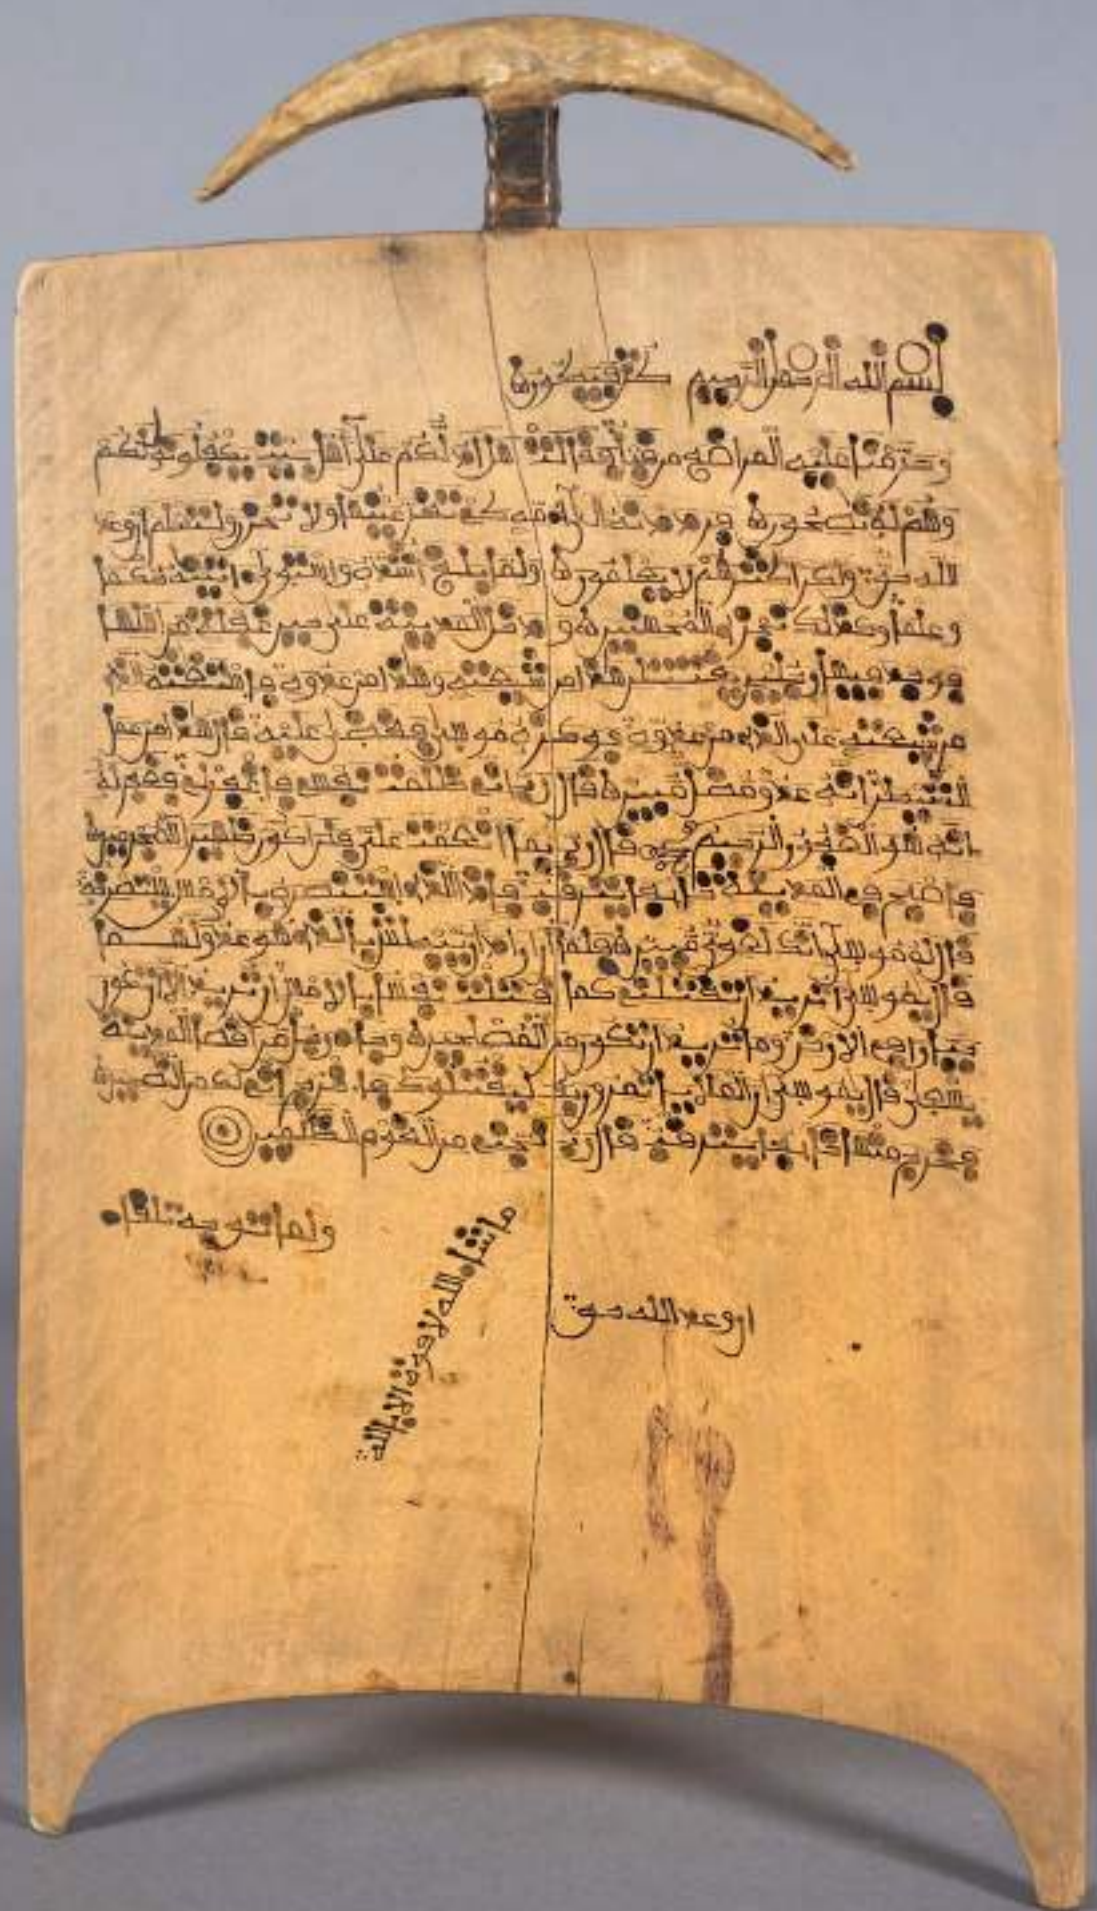 بسم الله الرحمن الرحيم
وحرمنا عليه المراضع من قبل فقالت هل ادلكم على اهل بيت يكفلونه لكم
وهم له نصحون فرددنه الى امه كي تقر عينها ولا تحزن ولتعلم ان وعد
الله حق ولكن اكثرهم لا يعلمون ولما بلغ اشده واستوى اتينه حكما
وعلما وكذلك نجزي المحسنين ودخل المدينة على حين غفلة من اهلها
فوجد فيها رجلين يقتتلن هذا من شيعته وهذا من عدوه فاستغثه الذي
من شيعته على الذي من عدوه فوكزه موسى فقضى عليه قال هذا من عمل
الشيطن انه عدو مضل مبين قال رب اني ظلمت نفسي فاغفر لي فغفر له
انه هو الغفور الرحيم قال رب بما انعمت علي فلن اكون ظهيرا للمجرمين
فاصبح في المدينة خايفا يترقب فاذا الذي استنصره بالامس يستصرخه
قال له موسى انك لغوي مبين فلما ان اراد ان يبطش بالذي هو عدو لهما
قال يموسى اتريد ان تقتلني كما قتلت نفسا بالامس ان تريد الا ان تكون
جبارا في الارض وما تريد ان تكون من المصلحين وجاء رجل من اقصا المدينة
يسعى قال يموسى ان الملا ياتمرون بك ليقتلوك فاخرج اني لك من النصحين
فخرج منها خايفا يترقب قال رب نجني من القوم الظلمين
ولما توجه تلقاء
ما شاء الله لا قوة الا بالله
ان وعد الله حق